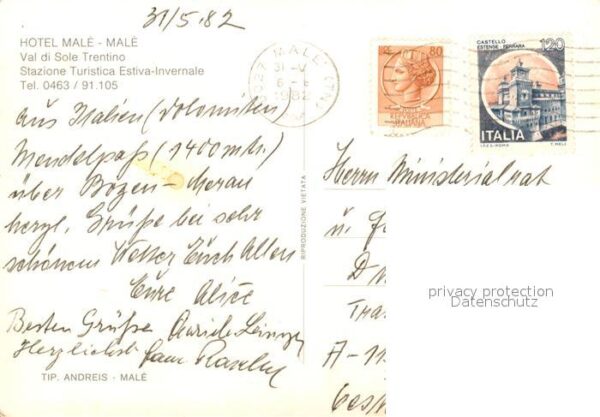 31/5.82
HOTEL MALÈ - MALÈ
Val di Sole Trentino
Stazione Turistica Estiva-Invernale
Tel. 0463 / 91.105
Aus Italien (Dolomiten)
Mendelpaß (1400 mtr.)
über Bozen - Meran
herzl. Grüße bei sehr
schönem Wetter Euch Allen
Eure Alice
Besten Grüße
Herzlichst
TIP. ANDREIS - MALÈ
RIPRODUZIONE VIETATA
MALE' (TN)
31-V
1982
80
REPUBBLICA
ITALIANA
CASTELLO
ESTENSE - FERRARA
120
ITALIA
I.P.Z.S. - ROMA
Herrn Ministerialrat
u.
A-11
privacy protection
Datenschutz